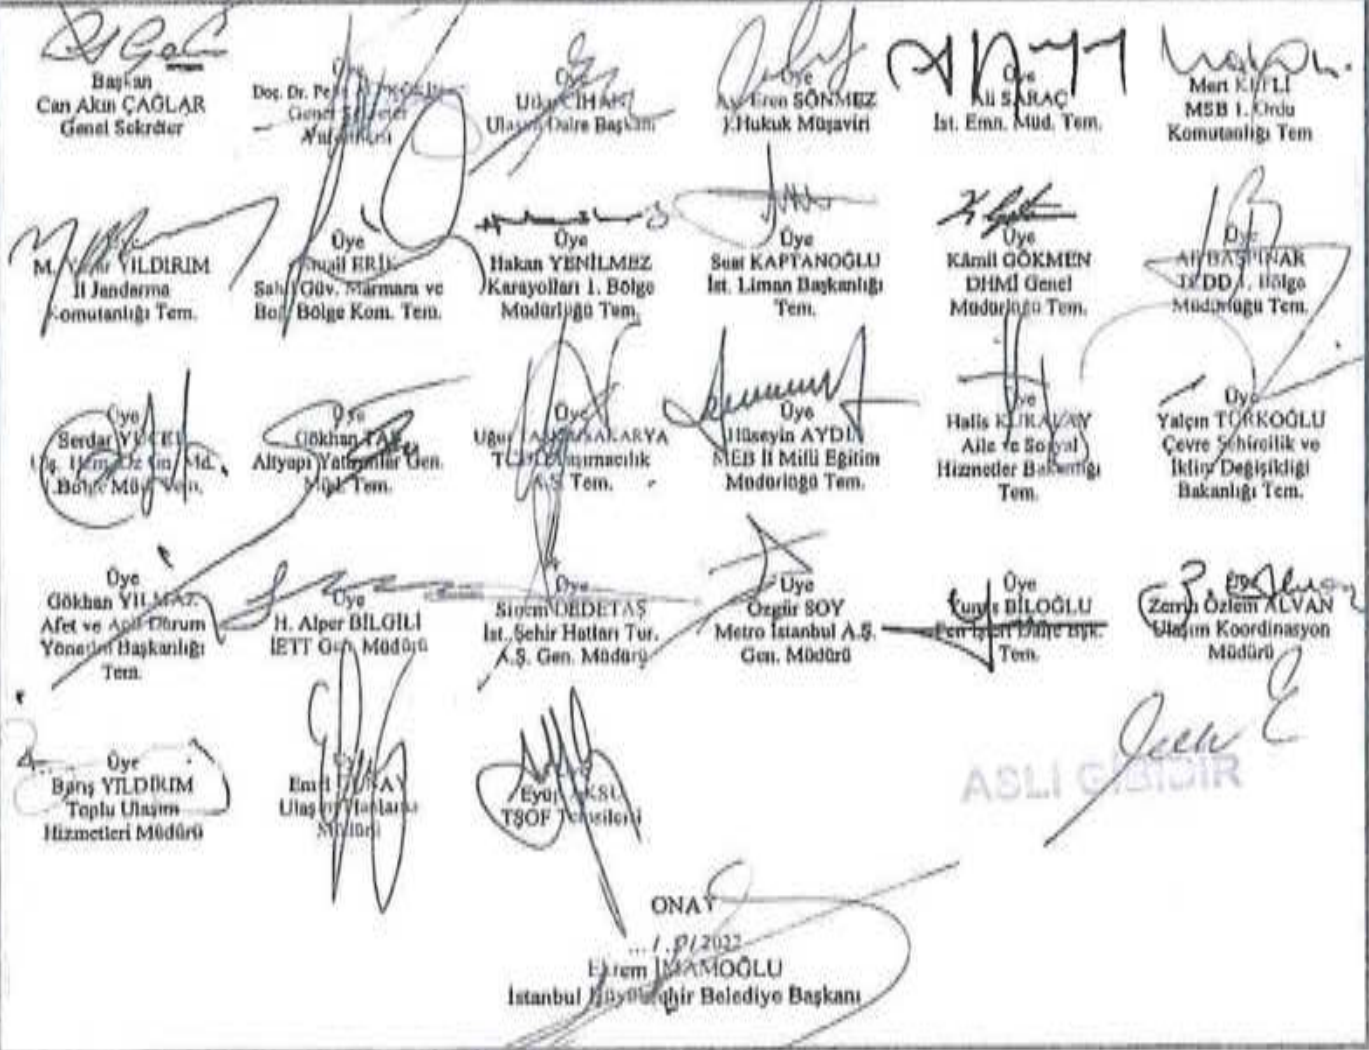 Başkan
Can Akın ÇAĞLAR
Genel Sekreter
Üye
Doç. Dr.
Genel Sekreter
Üye
CİHAN
Ulaşım Daire Başkanı
Üye
Av. Eren SÖNMEZ
1.Hukuk Müşaviri
Üye
Ali SARAÇ
İst. Emn. Müd. Tem.
Mert
MSB 1. Ordu
Komutanlığı Tem
M. YILDIRIM
İl Jandarma
Komutanlığı Tem.
Üye
ERİK
Sahil Güv. Marmara ve
Boğ. Bölge Kom. Tem.
Üye
Hakan YENİLMEZ
Karayolları 1. Bölge
Müdürlüğü Tem.
Üye
Suat KAPTANOĞLU
İst. Liman Başkanlığı
Tem.
Üye
Kâmil GÖKMEN
DHMİ Genel
Müdürlüğü Tem.
Üye
TCDD 1. Bölge
Müdürlüğü Tem.
Üye
Serdar
Üye
Gökhan
Altyapı Yatırımlar Gen.
Müd. Tem.
Üye
Taşımacılık
A.Ş. Tem.
Üye
Hüseyin AYDIN
MEB İl Milli Eğitim
Müdürlüğü Tem.
Üye
Halis
Aile ve Sosyal
Hizmetler Bakanlığı
Tem.
Üye
Yalçın TÜRKOĞLU
Çevre Şehircilik ve
İklim Değişikliği
Bakanlığı Tem.
Üye
Gökhan YILMAZ
Afet ve Acil Durum
Yönetim Başkanlığı
Tem.
Üye
H. Alper BİLGİLİ
İETT Gen. Müdürü
Üye
Sinem DEDETAŞ
İst. Şehir Hatları Tur.
A.Ş. Gen. Müdürü
Üye
Özgür SOY
Metro İstanbul A.Ş.
Gen. Müdürü
Üye
BİLOĞLU
Fen İşleri Daire Bşk.
Tem.
Zerrin Özlem ALVAN
Ulaşım Koordinasyon
Müdürü
Üye
Barış YILDIRIM
Toplu Ulaşım
Hizmetleri Müdürü
Ulaşım Planlama
Müdürü
Eyüp AKSU
TŞOF Temsilcisi
ASLI GİBİDİR
ONAY
2022
Ekrem İMAMOĞLU
İstanbul Büyükşehir Belediye Başkanı